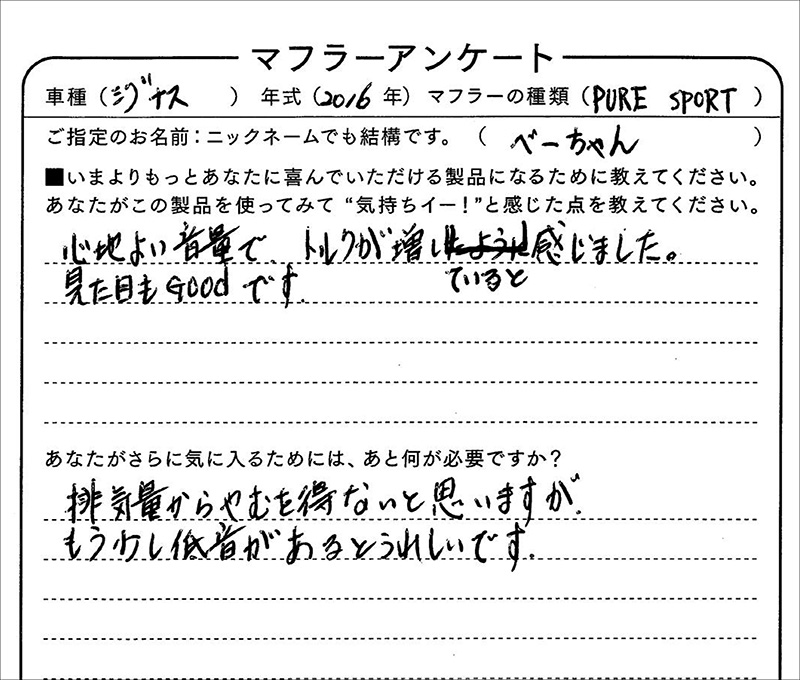 マフラーアンケート
車種（シグナス　　） 年式（2016 年） マフラーの種類（PURE SPORT ）
ご指定のお名前：ニックネームでも結構です。（ べーちゃん ）
■いまよりもっとあなたに喜んでいただける製品になるために教えてください。
あなたがこの製品を使ってみて “気持ちイー！”と感じた点を教えてください。
心地よい音量で、トルクが増したように感じました。
ていると
見た目もGoodです.
あなたがさらに気に入るためには、あと何が必要ですか？
排気量からやむを得ないと思いますが.
もう少し低音があるとうれしいです.